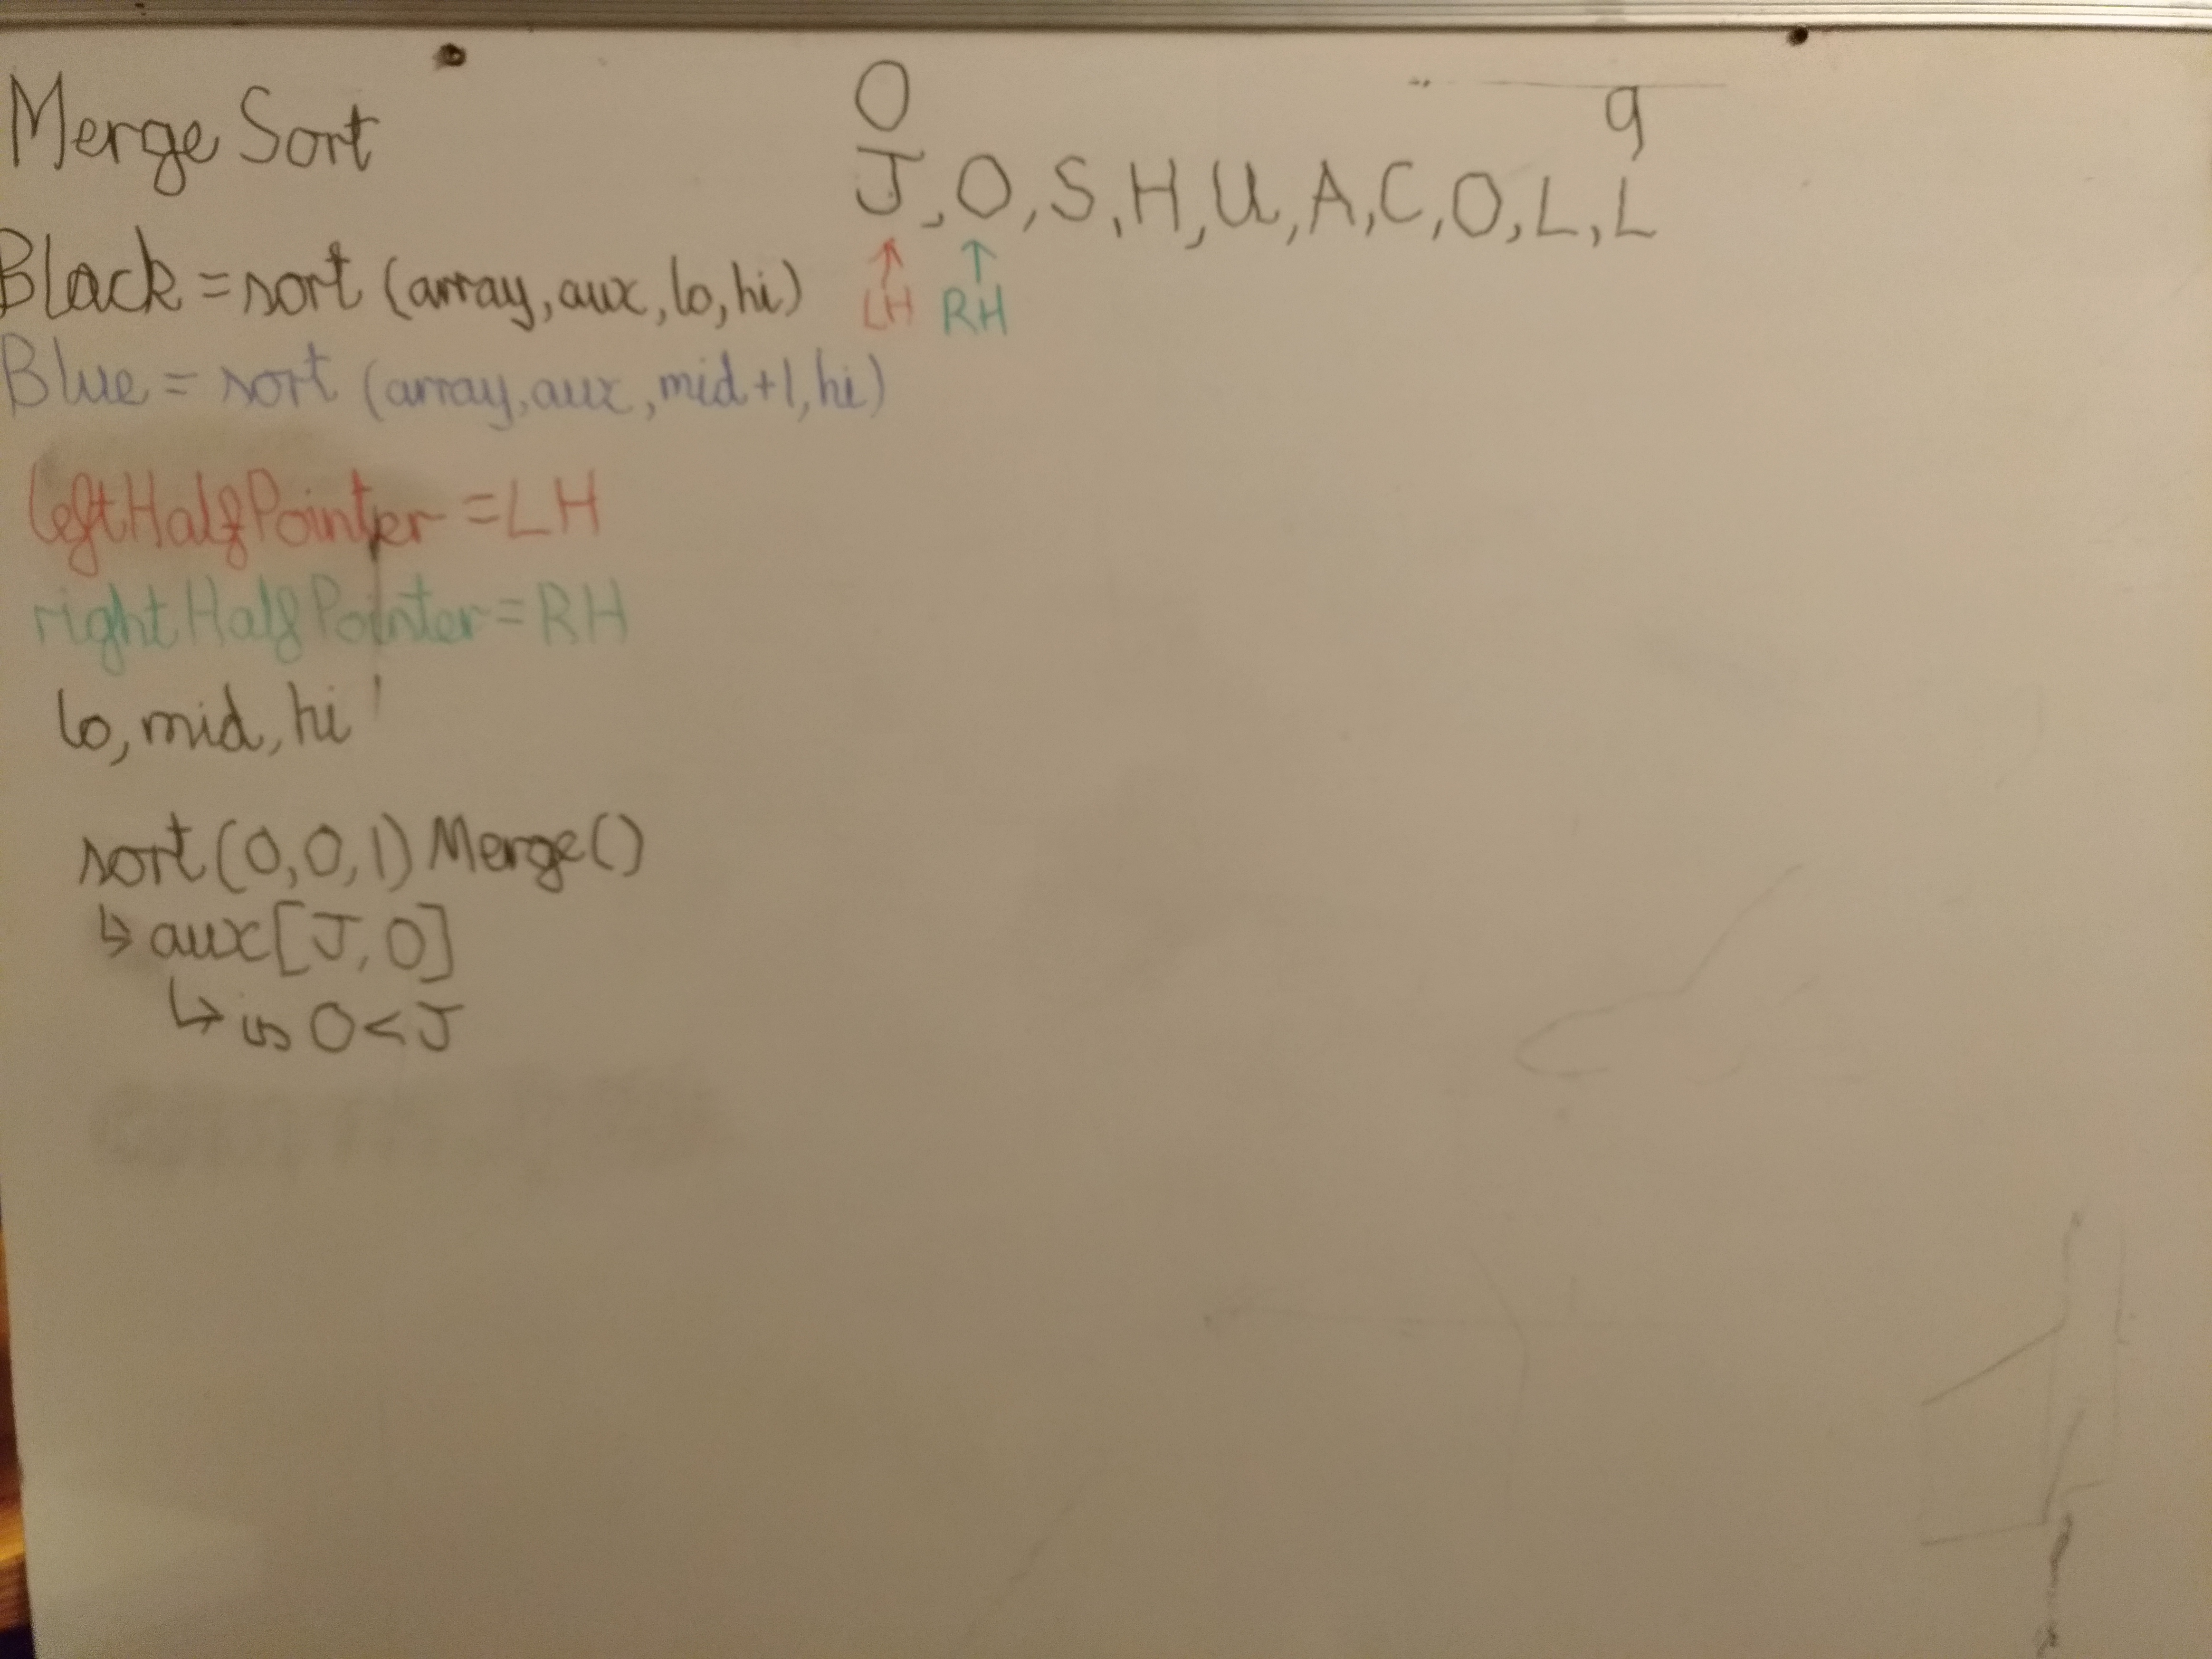 Merge Sort
0 9
J,O,S,H,U,A,C,O,L,L
LH RH
Black = sort (array,aux,lo,hi)
Blue = sort (array,aux,mid+1,hi)
leftHalfPointer = LH
rightHalfPointer = RH
lo, mid, hi
sort(0,0,1) Merge()
↳ aux[J,O]
↳ is O<J